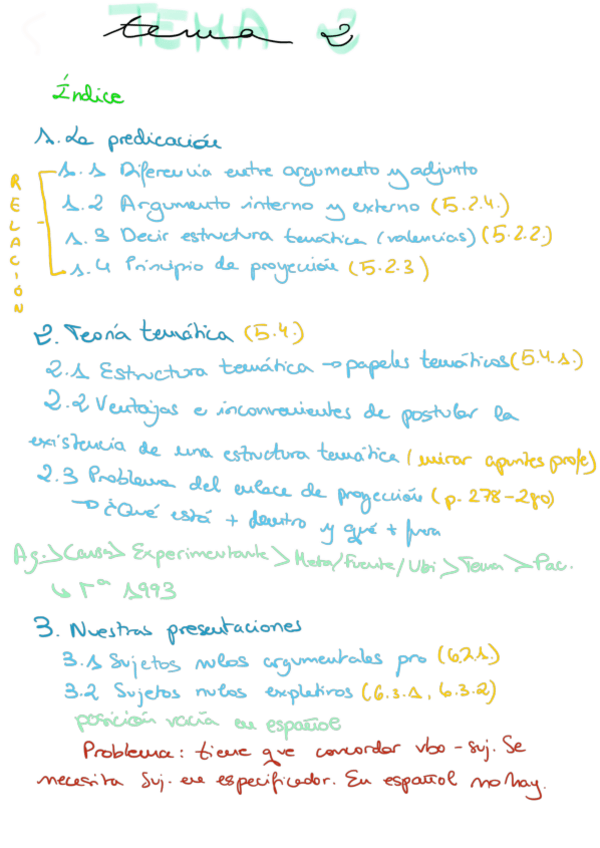 TEMA 2
tema 2
Índice
1. La predicación
1.1 Diferencia entre argumento y adjunto
1.2 Argumento interno y externo (5.2.4.)
1.3 Decir estructura temática (valencias) (5.2.2.)
1.4 Principio de proyección (5.2.3)
RELACIÓN
2. Teoría temática (5.4.)
2.1 Estructura temática → papeles temáticos (5.4.1.)
2.2 Ventajas e inconvenientes de postular la
existencia de una estructura temática (mirar apuntes profe)
2.3 Problema del enlace de proyección (p. 278-280)
→ ¿Qué está + dentro y qué + fuera
Ag. > Causa > Experimentante > Meta/Fuente/Ubi > Tema > Pac.
↳ 1993
3. Nuestras presentaciones
3.1 Sujetos nulos argumentales pro (6.2.1.)
3.2 Sujetos nulos expletivos (6.3.1, 6.3.2)
posición vacía en español
Problema: tiene que concordar vbo - suj. Se
necesita Suj. en especificador. En español no hay.